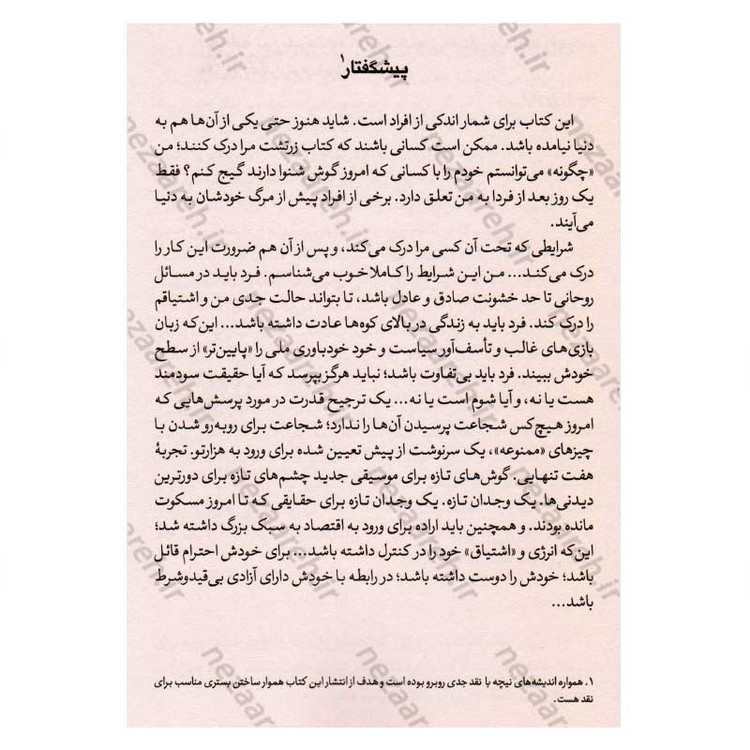 پیشگفتار۱
این کتاب برای شمار اندکی از افراد است. شاید هنوز حتی یکی از آن‌ها هم به
دنیا نیامده باشد. ممکن است کسانی باشند که کتاب زرتشت مرا درک کنند؛ من
«چگونه» می‌توانستم خودم را با کسانی که امروز گوش شنوا دارند گیج کنم؟ فقط
یک روز بعد از فردا به من تعلق دارد. برخی از افراد پیش از مرگ خودشان به دنیا
می‌آیند.
شرایطی که تحت آن کسی مرا درک می‌کند، و پس از آن هم ضرورت این کار را
درک می‌کند... من این شرایط را کاملا خوب می‌شناسم. فرد باید در مسائل
روحانی تا حد خشونت صادق و عادل باشد، تا بتواند حالت جدی من و اشتیاقم
را درک کند. فرد باید به زندگی در بالای کوه‌ها عادت داشته باشد... این‌که زبان
بازی‌های غالب و تأسف‌آور سیاست و خود خودباوری ملی را «پایین‌تر» از سطح
خودش ببیند. فرد باید بی‌تفاوت باشد؛ نباید هرگز بپرسد که آیا حقیقت سودمند
هست یا نه، و آیا شوم است یا نه... یک ترجیح قدرت در مورد پرسش‌هایی که
امروز هیچ‌کس شجاعت پرسیدن آن‌ها را ندارد؛ شجاعت برای روبه‌رو شدن با
چیزهای «ممنوعه»، یک سرنوشت از پیش تعیین شده برای ورود به هزارتو. تجربهٔ
هفت تنهایی. گوش‌های تازه برای موسیقی جدید چشم‌های تازه برای دورترین
دیدنی‌ها. یک وجدان تازه. یک وجدان تازه برای حقایقی که تا امروز مسکوت
مانده بودند. و همچنین باید اراده برای ورود به اقتصاد به سبک بزرگ داشته شد؛
این‌که انرژی و «اشتیاق» خود را در کنترل داشته باشد... برای خودش احترام قائل
باشد؛ خودش را دوست داشته باشد؛ در رابطه با خودش دارای آزادی بی‌قیدوشرط
باشد...
۱. همواره اندیشه‌های نیچه با نقد جدی روبرو بوده است و هدف از انتشار این کتاب هموار ساختن بستری مناسب برای
نقد هست.
nezaareh.ir